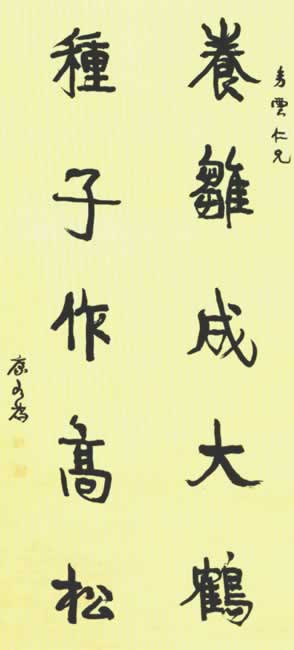 雲仁兄
養雛成大鶴
種子作高松
康有為